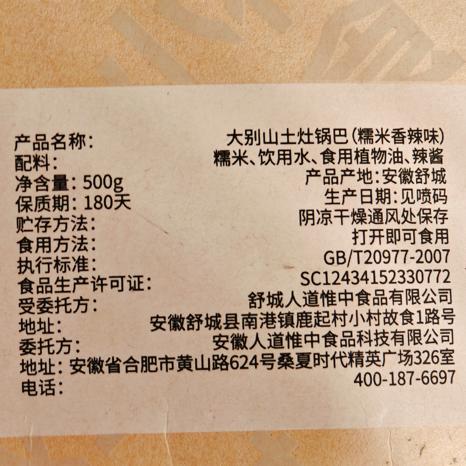 产品名称： 大别山土灶锅巴（糯米香辣味）
配料： 糯米、饮用水、食用植物油、辣酱
净含量：500g 产品产地：安徽舒城
保质期：180天 生产日期：见喷码
贮存方法： 阴凉干燥通风处保存
食用方法： 打开即可食用
执行标准： GB/T20977-2007
食品生产许可证： SC12434152330772
受委托方： 舒城人道惟中食品有限公司
地址： 安徽舒城县南港镇鹿起村小村故食1路号
委托方： 安徽人道惟中食品科技有限公司
地址：安徽省合肥市黄山路624号桑夏时代精英广场326室
电话： 400-187-6697